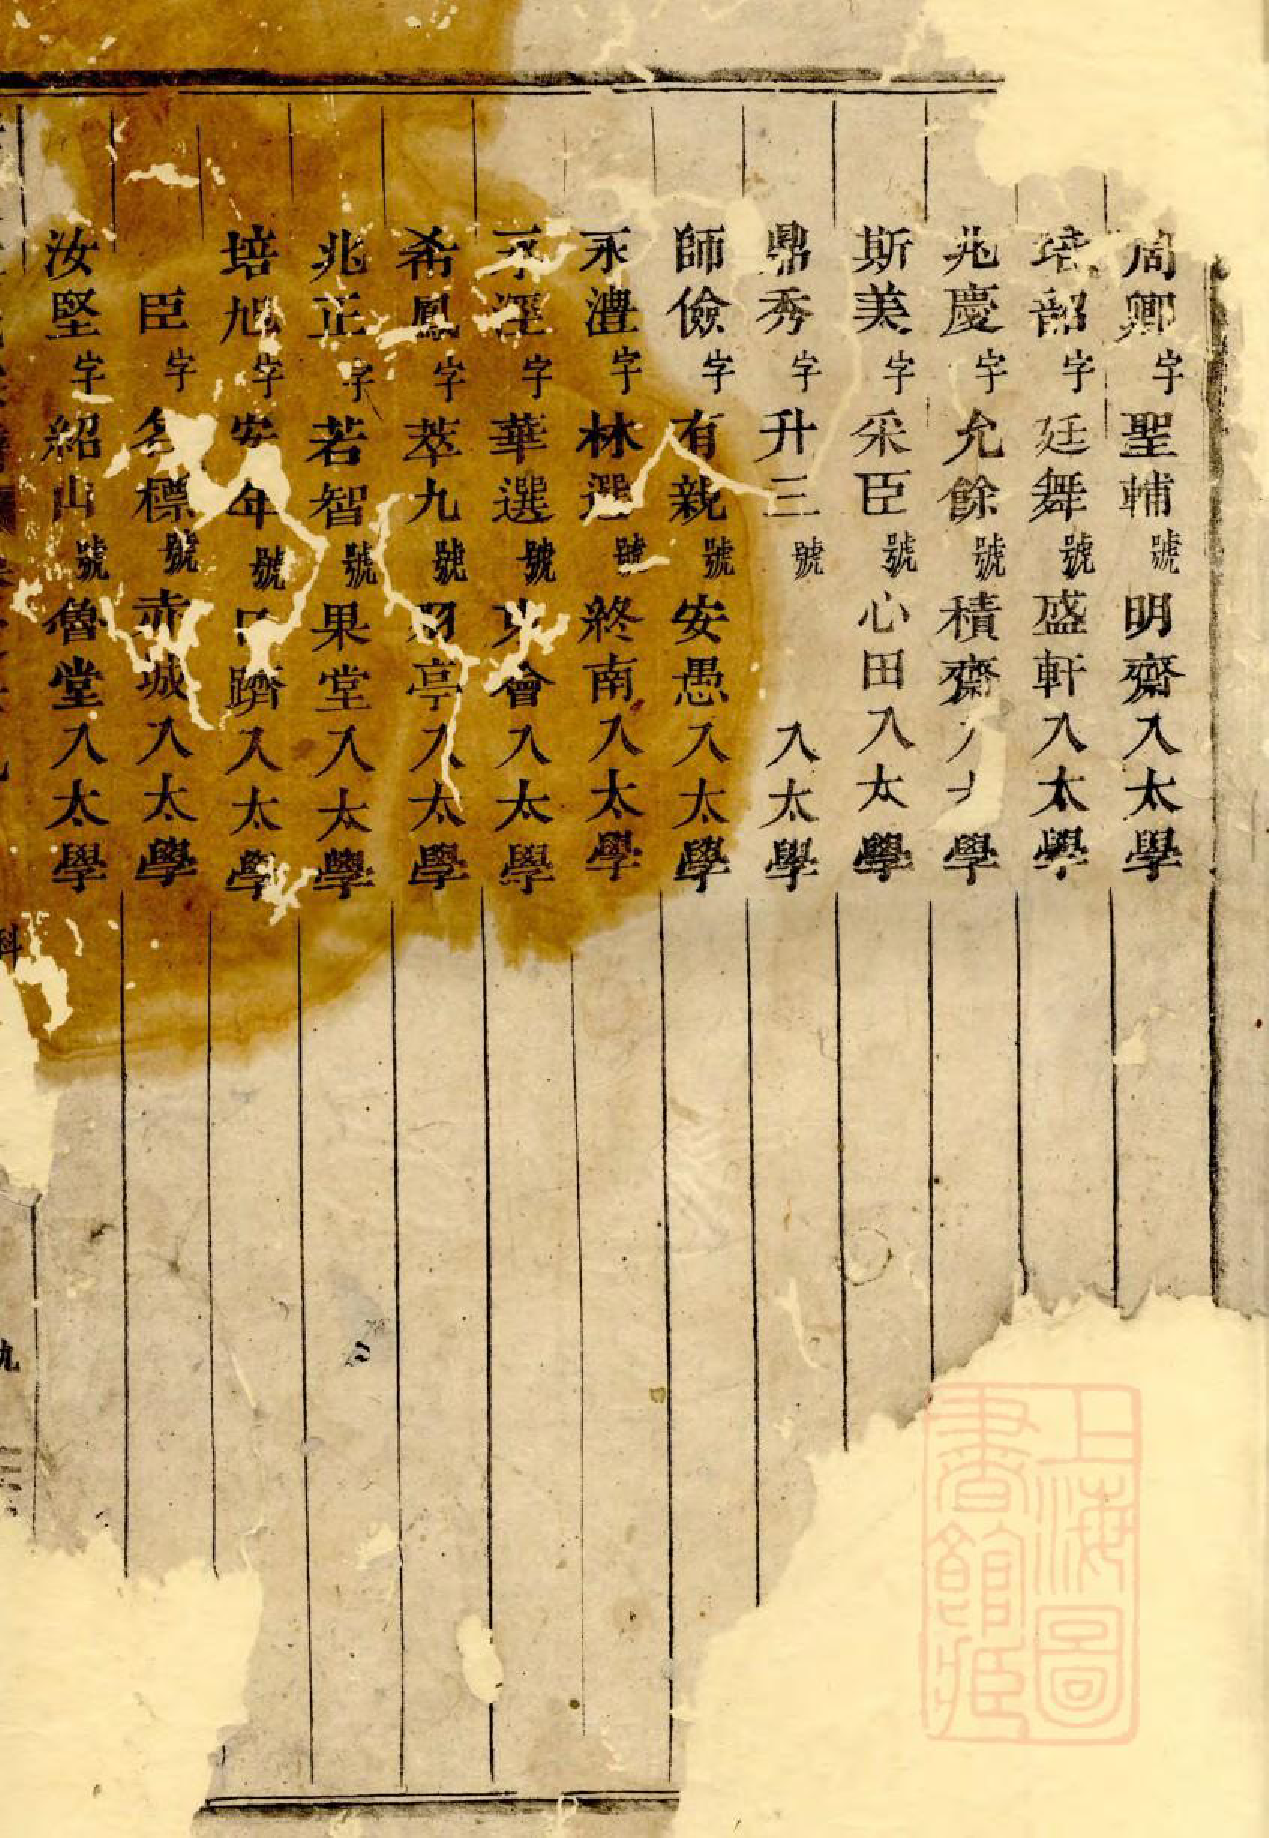 周卿字聖輔號明齋入太學
培韶字廷舞號盛軒入太學
兆慶字允餘號積齋入太學
斯美字采臣號心田入太學
鼎秀字升三號入太學
師儉字有親號安愚入太學
永灃字林選號終南入太學
永涇字華選號東會入太學
希鳳字萃九號亭入太學
兆正字若智號果堂入太學
培旭字安年號躋入太學
臣字名標號赤城入太學
汝堅字紹山號魯堂入太學
科
九
上海圖書館藏